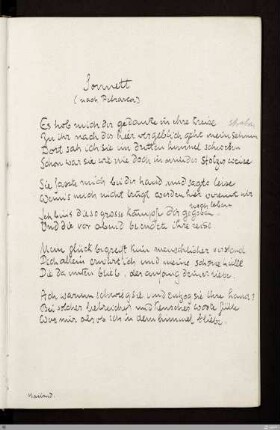 Sonnett
(nach Petrarca)
Es hob mich der gedanke in ihre kreise
Zu ihr nach der hier vergeblich geht mein sehnen
Dort sah ich sie im dritten himmel
Schön war sie wie nie doch in minder stolzer weise
Sie fasste mich bei der hand und sagte leise
Wenn mich nicht trügt werden hier vereint wir
noch leben
Ich bins die so grosse kämpfe dir gegeben
Und die vor abend beendet ihre reise
Mein glück begreift kein menschlicher verstand
Dich allein erwart ich und meine schöne hülle
Die da unten blieb, der anfang deiner liebe.
Ach warum schwieg sie und entzog sie ihre hand?
Bei solcher liebreichen und keuschen worte fülle
War mir als ob ich in dem himmel bliebe.
Mailand.